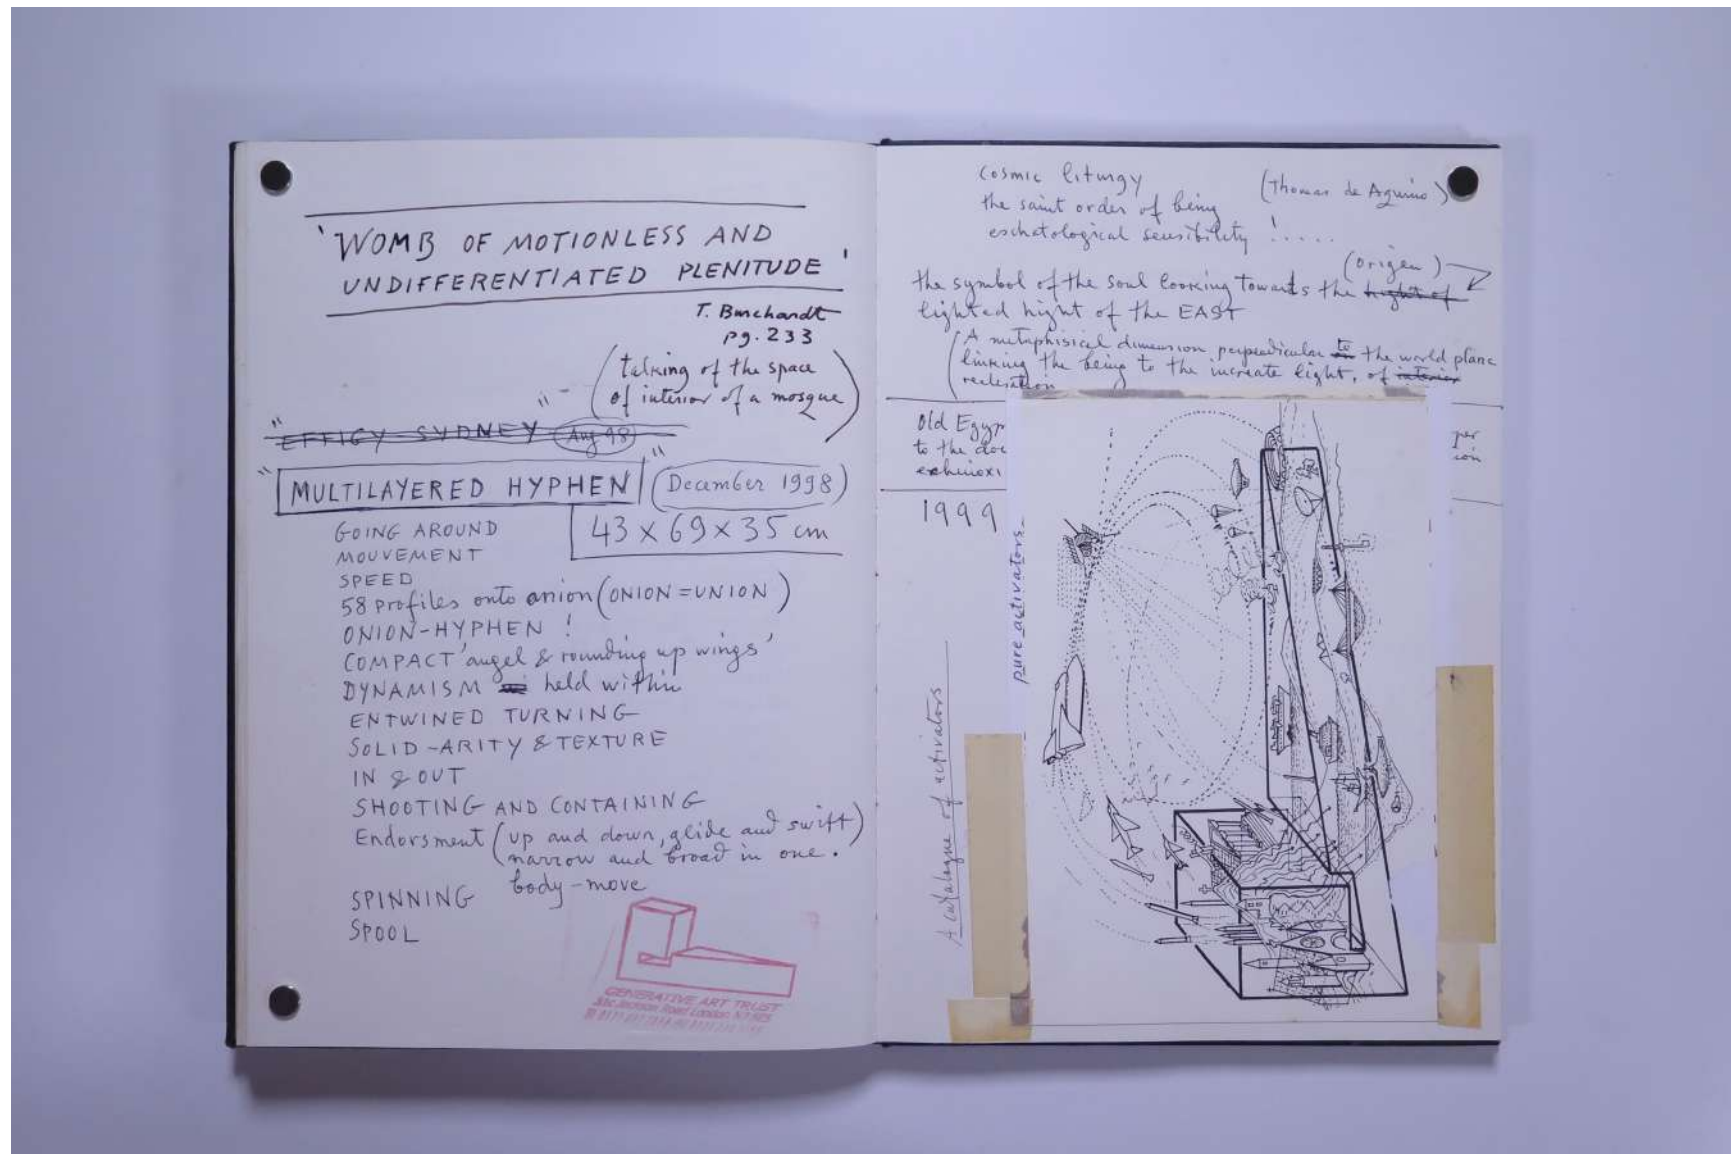 'WOMB OF MOTIONLESS AND
UNDIFFERENTIATED PLENITUDE'
T. Burchardt
pg. 233
(talking of the space
of interior of a mosque)
"EFFIGY SYDNEY" Aug 98
"MULTILAYERED HYPHEN" (December 1998)
43 x 69 x 35 cm
GOING AROUND
MOUVEMENT
SPEED
58 profiles onto onion (ONION = UNION)
ONION-HYPHEN !
COMPACT 'angel & rounding up wings'
DYNAMISM held within
ENTWINED TURNING
SOLID-ARITY & TEXTURE
IN & OUT
SHOOTING AND CONTAINING
Endorsment (up and down, glide and swift)
narrow and broad in one.
body-move
SPINNING
SPOOL
GENERATIVE ART TRUST
Road London N7
cosmic liturgy
(Thomas de Aquino)
the saint order of being
eschatological sensibility !.....
(origen)
the symbol of the soul looking towards the hight of
lighted hight of the EAST
(A metaphisical dimension perpendicular to the world plane
linking the being to the increate light, of interior
realisation
Old Egyp
to the doc
1999
pure activators
A catalogue of activators